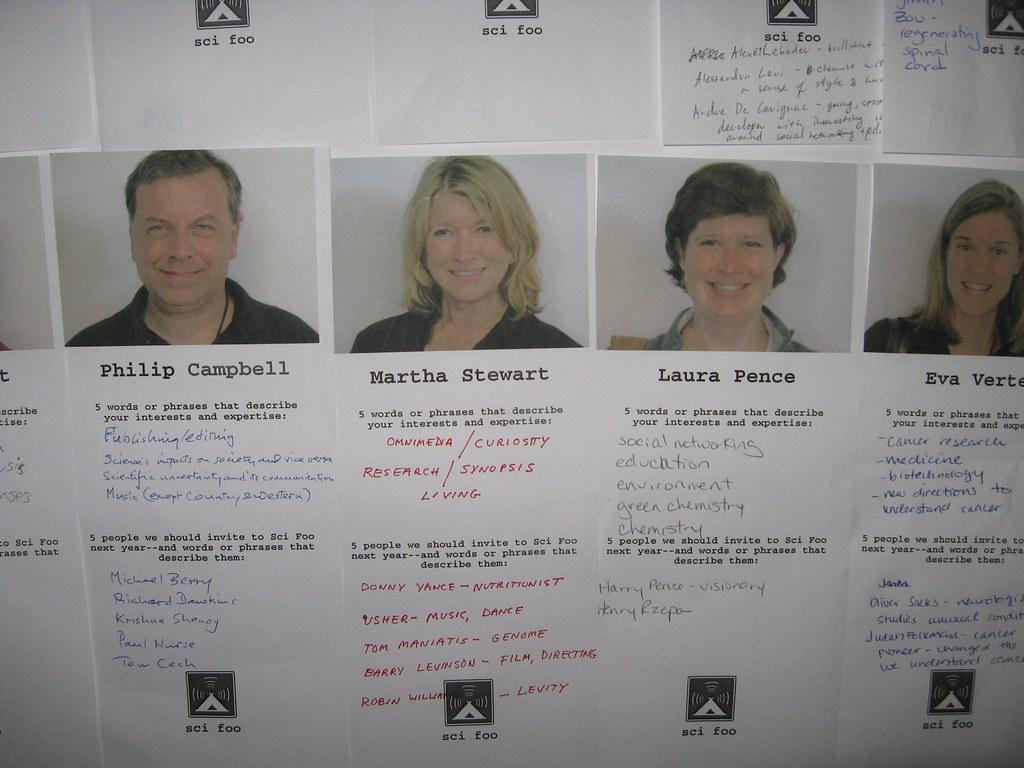 sci foo
sci foo
sci foo
sci f
Zou -
regenerating
spinal
cord
brilliant
Alessandra
a sense of style &
Andre De Cavignac - young,
developer with interesting
around social networking
Philip Campbell
5 words or phrases that describe
your interests and expertise:
Publishing/editing
Science's impacts on society and vice versa
Scientific uncertainty and its communication
Music (except Country & Western)
5 people we should invite to Sci Foo
next year--and words or phrases that
describe them:
Michael Berry
Richard Dawkins
Krishna Shenoy
Paul Nurse
Tom Cech
sci foo
Martha Stewart
5 words or phrases that describe
your interests and expertise:
OMNIMEDIA / CURIOSITY
RESEARCH / SYNOPSIS
LIVING
5 people we should invite to Sci Foo
next year--and words or phrases that
describe them:
DONNY YANCE - NUTRITIONIST
USHER - MUSIC, DANCE
TOM MANIATIS - GENOME
BARRY LEVINSON - FILM, DIRECTING
ROBIN WILLIAM - LEVITY
sci foo
Laura Pence
5 words or phrases that describe
your interests and expertise:
social networking
education
environment
green chemistry
chemistry
5 people we should invite to Sci Foo
next year--and words or phrases that
describe them:
Harry Pence - visionary
Henry Rzepa
sci foo
Eva Verte
5 words or phrases that
your interests and expe
- cancer research
- medicine
- biotechnology
- new directions to
understand cancer
5 people we should invite to
next year--and words or phra
describe them:
Oliver Sacks - neurologi
studies unusual condit
Judah Folkman - cancer
pioneer - changed the
we understand cance
sci foo